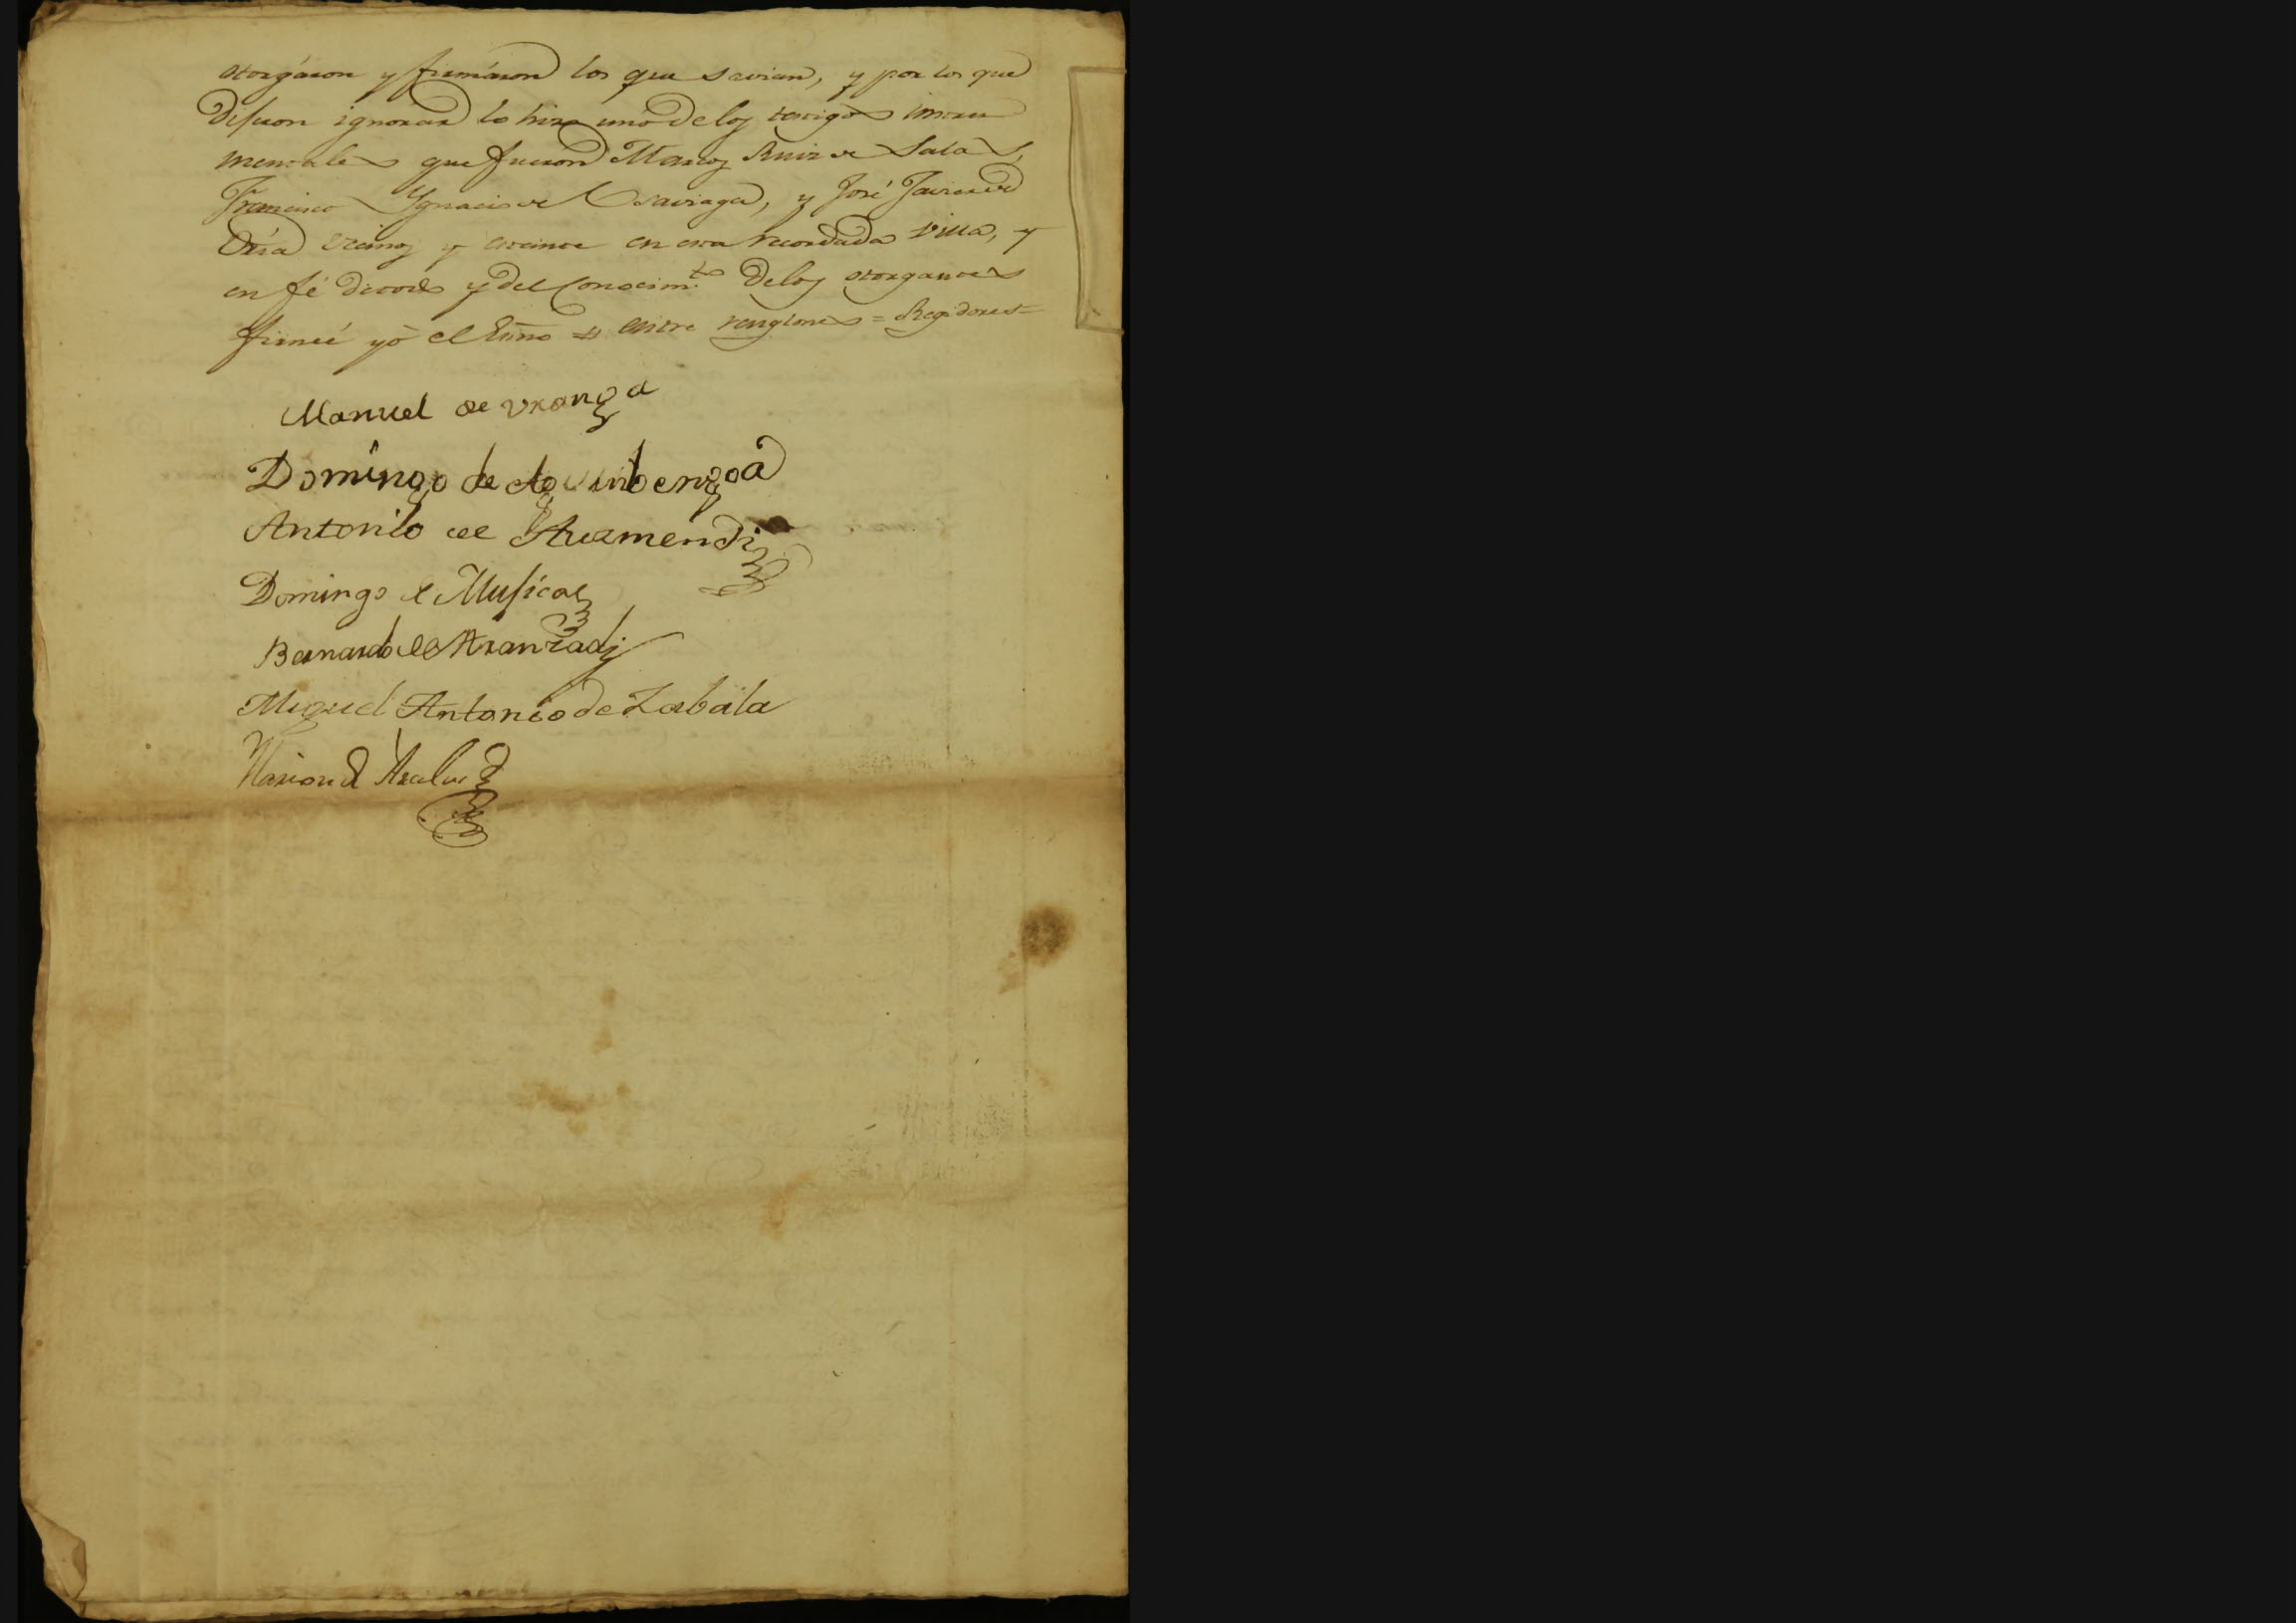 otorgáron y firmáron los que savian, y por los que
dijeron ignorar lo hizo uno de los testigos instru
mentales que fueron Marcos Ruiz de Salas,
Francisco Ygnacio de y José Javier de
Oria vecinos y estante en esta recordada villa, y
en fé de todo y del Conocim.to de los otorgantes
firmé yo el Essno = entre renglones = Regidores =
Manuel de Vranga
Domingo de
Antonio de Aramendi
Domingo de Musica
Bernardo de Aranzadi
Miguel Antonio de Zabala